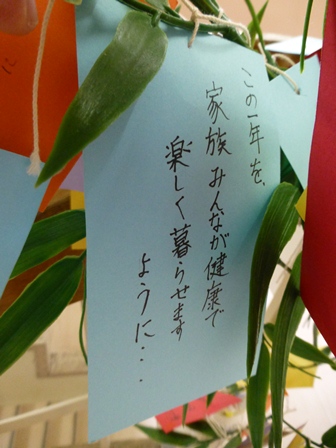 この一年を、
家族みんなが健康で
楽しく暮らせます
ように・・・